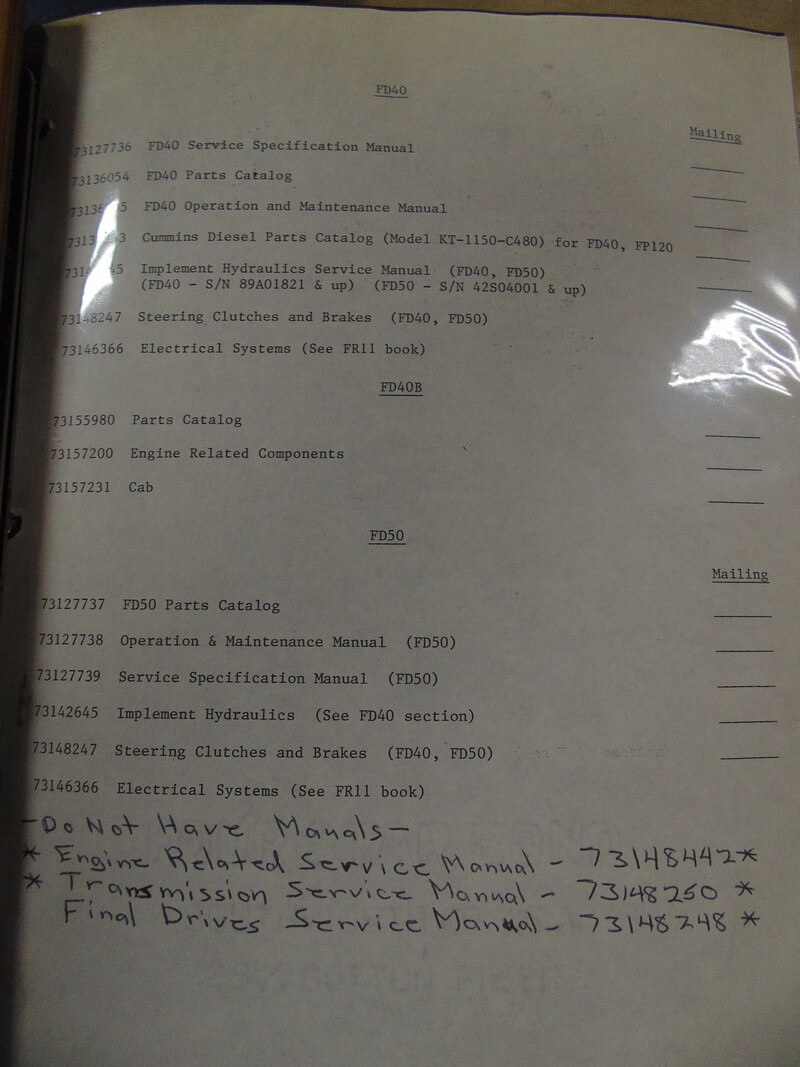 FD40
Mailing
73127736 FD40 Service Specification Manual
73136054 FD40 Parts Catalog
FD40 Operation and Maintenance Manual
Cummins Diesel Parts Catalog (Model KT-1150-C480) for FD40, FP120
Implement Hydraulics Service Manual (FD40, FD50)
(FD40 - S/N 89A01821 & up) (FD50 - S/N 42S04001 & up)
73148247 Steering Clutches and Brakes (FD40, FD50)
73146366 Electrical Systems (See FR11 book)
FD40B
73155980 Parts Catalog
73157200 Engine Related Components
73157231 Cab
FD50
Mailing
73127737 FD50 Parts Catalog
73127738 Operation & Maintenance Manual (FD50)
73127739 Service Specification Manual (FD50)
73142645 Implement Hydraulics (See FD40 section)
73148247 Steering Clutches and Brakes (FD40, FD50)
73146366 Electrical Systems (See FR11 book)
-Do Not Have Manals-
* Engine Related Service Manual - 73148442*
* Transmission Service Manual - 73148250 *
Final Drives Service Manual - 73148248 *